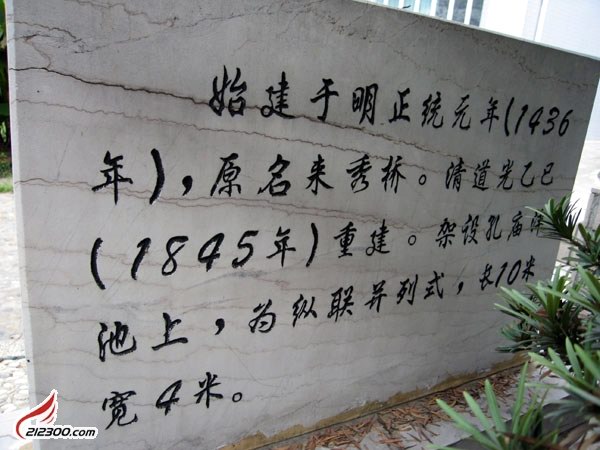 始建于明正统元年(1436
年)，原名来秀桥。清道光乙巳
(1845年)重建。架设孔庙泮
池上，为纵联并列式，长10米
宽4米。
212300.com